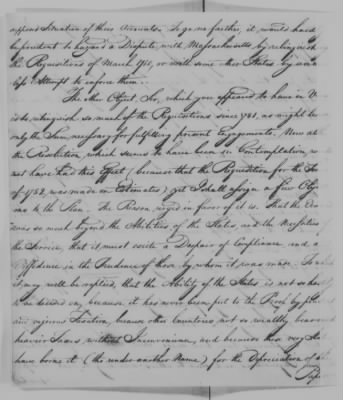 apparent Situation of their Accounts. To go no farther, it would hardly
be prudent to hazard a Dispute with Massachusetts by relinquish
the Requisitions of March 1780, or with some other States by an
Attempt to inforce them.
The other Object, Sir, which you appeared to have in V
is to relinquish so much of the Requisitions since 1781, as might be
only the Sum necessary for fulfilling present Engagements. Now as
the Resolution, which seems to have been in Contemplation, w
not have had this Effect (because that the Requisition for the Se
of 1782, was made on Estimates) yet I shall assign a few Obje
ons to the Plan. The Reason urged in favor of it is, that the De
was so much beyond the Abilities of the States, and the Necessities
the Service, that it must excite a Despair of Compliance and a
Diffidence in the Prudence of those by whom it was made. To which
I may will be replied, that the Ability of the States is not so hastily
to be decided on, because it has never been put to the Proof by fair
and vigorous Taxation, because other Countries not so wealthy bear
heavier Taxes without Inconvenience, and because these very States
have borne it (tho under another Name) for the Depreciation of
Pap